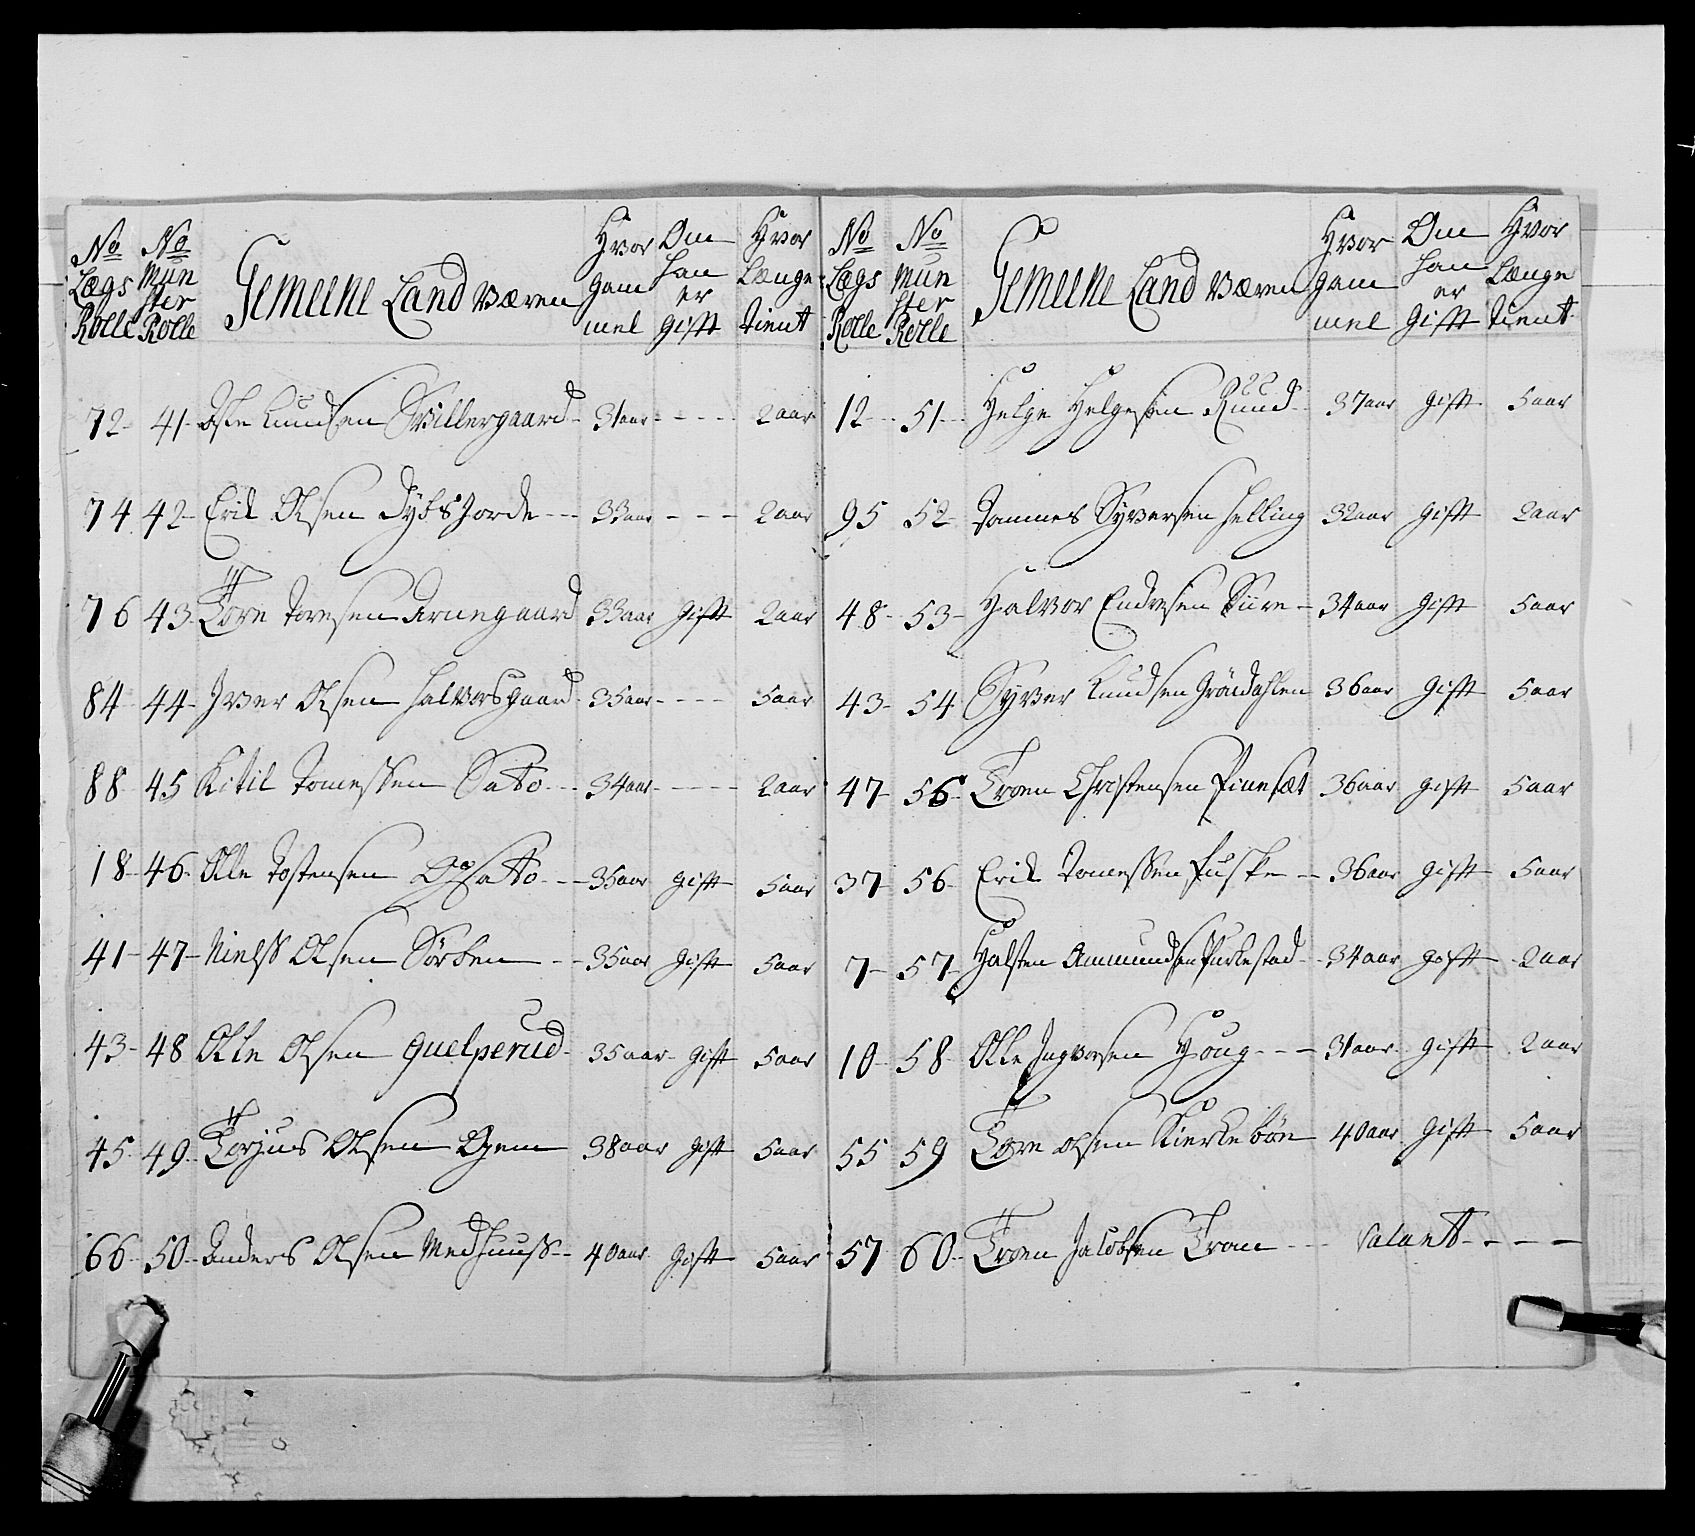 No Lægs Rolle No Mun ster Rolle Gemeene Land Væren Hvor gam mel Om han er gift Hvor Længe tient
72 41 Knudsen Villergaard 31 aar 2 aar
74 42 Erik Olsen Dybsjorde 33 aar 2 aar
76 43 Tore Toresen Arnegaard 33 aar gift 2 aar
84 44 Iver Olsen Halvorsgaard 35 aar 5 aar
88 45 Kitil Tomessen Sato 34 aar 2 aar
18 46 Olle Tostensen Opsatto 35 aar gift 5 aar
41 47 Nielss Olsen Sørben 35 aar gift 5 aar
43 48 Olle Olsen Quelperud 35 aar gift 5 aar
45 49 Torjus Olsen 38 aar gift 5 aar
66 50 Anders Olsen Medhuuss 40 aar gift 5 aar
No Lægs Rolle No Mun ster Rolle Gemeene Land Væren Hvor gam mel Om han er gift Hvor Længe tient
12 51 Helge Helgesen Ruud 37 aar gift 5 aar
95 52 Tommes Syversen Helling 32 aar gift 2 aar
48 53 Halvor Endresen Siire 34 aar gift 5 aar
43 54 Syver Knudsen Grøndahlen 36 aar gift 5 aar
47 56 Troen Christensen Finesæt 36 aar gift 5 aar
37 56 Erik Tomessen Fuske 36 aar gift 5 aar
7 57 Halsten Amundsen Purkestad 34 aar gift 2 aar
10 58 Olle Ingvorsen Houg 31 aar gift 2 aar
55 59 Tore Olsen Kierkebøn 40 aar gift 5 aar
57 60 Troen Jacobsen Trøm Vacant